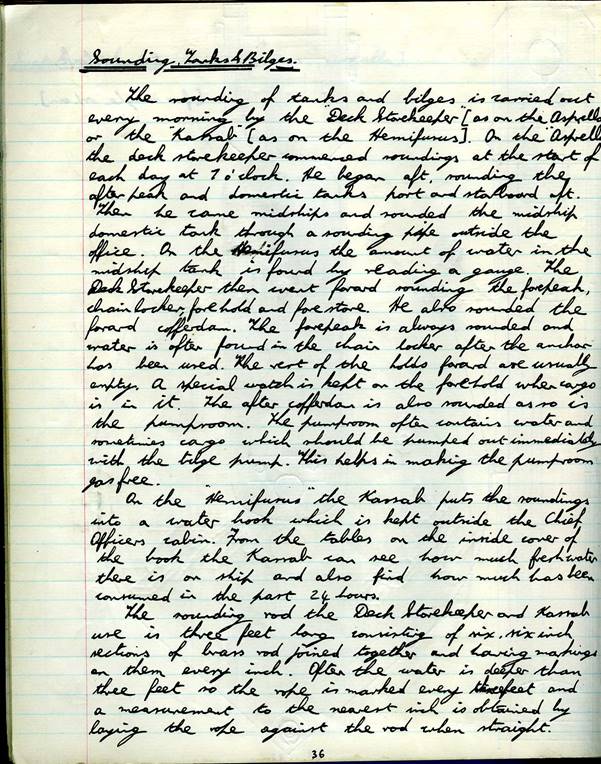 Sounding, Tanks & Bilges.
The sounding of tanks and bilges is carried out
every morning by the "Deck Storekeeper" [as on the Asprella
or the "Kassab" [as on the Hemifusus]. On the "Asprella
the deck storekeeper commenced soundings at the start of
each day at 7 o'clock. He began aft, sounding the
after peak and domestic tanks port and starboard aft.
Then he came midships and sounded the midship
domestic tank through a sounding pipe outside the
office. On the Hemifusus the amount of water in the
midship tank is found by reading a gauge. The
Deck Storekeeper then went forard sounding the forepeak,
chain locker, forehold, and fore store. He also sounded the
forard cofferdam. The forepeak is always sounded and
water is often found in the chain locker after the anchor
has been used. The rest of the holds forard are usually
empty. A special watch is kept on the forehold when cargo
is in it. The after cofferdam is also sounded as so is
the pumproom. The pumproom often contains water and
sometimes cargo which should be pumped out immediately
with the bilge pump. This helps in making the pumproom
gas free.
On the "Hemifusus" the Kassab puts the soundings
into a water book which is kept outside the Chief
Officers cabin. From the tables on the inside cover of
the book the Kassab can see how much freshwater
there is on ship and also find how much has been
consumed in the past 24 hours.
The sounding rod the Deck Storekeeper and Kassab
use is three feet long consisting of six, six inch
sections of brass rod joined together and having markings
on them every inch. Often the water is deeper than
three feet so the rope is marked every three feet and
a measurement to the nearest inch is obtained by
laying the rope against the rod when straight.
36